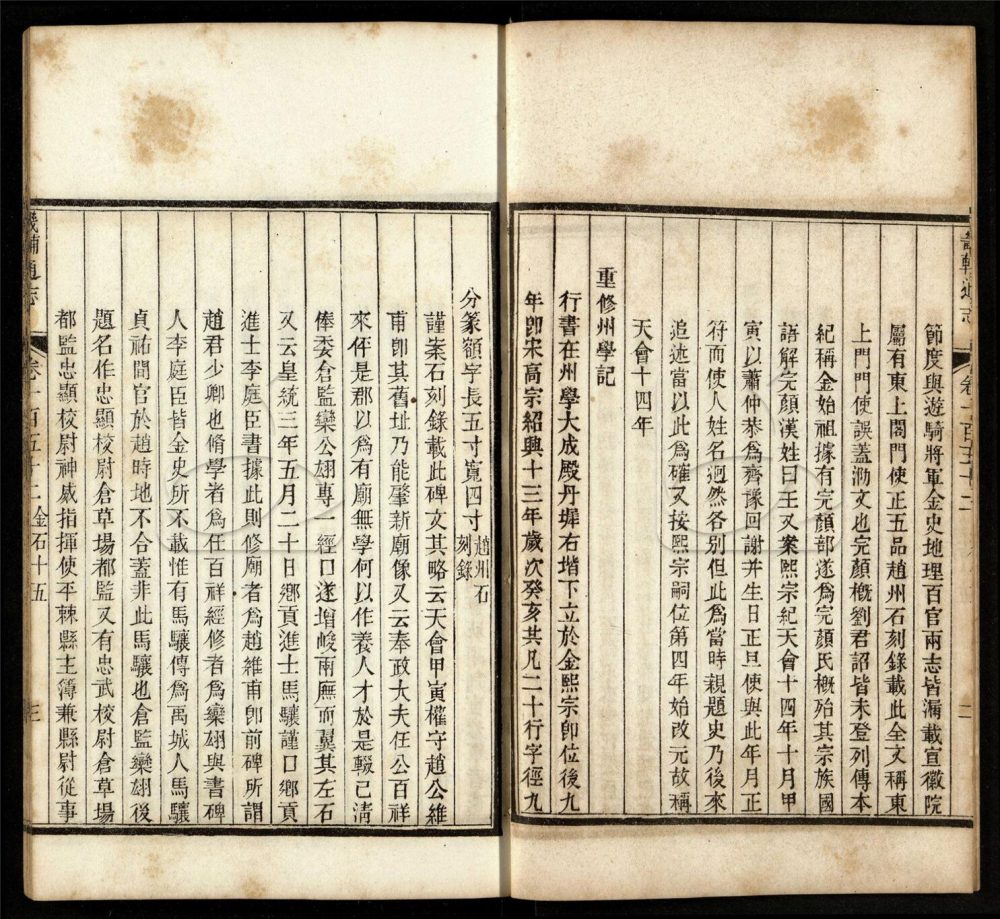 畿輔通志 卷一百五十二
節度與遊騎將軍金史地理百官兩志皆漏載宣徽院
屬有東上閤門使正五品趙州石刻錄載此全文稱東
上門門使誤蓋泐文也完顏槪劉君詔皆未登列傳本
紀稱金始祖據有完顏部遂爲完顏氏槪殆其宗族國
語解完顏漢姓曰王又案熙宗紀天會十四年十月甲
寅以蕭仲恭爲齊豫回謝幷生日正旦使與此年月正
符而使人姓名迥然各別但此爲當時親題史乃後來
追述當以此爲確又按熙宗嗣位第四年始改元故稱
天會十四年
重修州學記
行書在州學大成殿丹墀右堦下立於金熙宗卽位後九
年卽宋高宗紹興十三年歲次癸亥其凡二十行字徑九
分篆額字長五寸寬四寸趙州石刻錄
謹案石刻錄載此碑文其略云天會甲寅權守趙公維
甫卽其舊址乃能肇新廟像又云奉政大夫任公百祥
來伻是郡以爲有廟無學何以作養人才於是輟己淸
俸委倉監欒公翃專一經口遂增峻兩廡而翼其左右
又云皇統三年五月二十日鄉貢進士馬驤謹口鄉貢
進士李庭臣書據此則修廟者爲趙維甫卽前碑所謂
趙君少卿也脩學者爲任百祥經修者爲欒翃與書碑
人李庭臣皆金史所不載惟有馬驤傳爲禹城人馬驤
貞祐間官於趙時地不合蓋非此馬驤也倉監欒翃後
題名作忠顯校尉倉草場都監又有忠武校尉倉草場
都監忠顯校尉神威指揮使平棘縣主簿兼縣尉從事
畿輔通志 卷一百五十二 金石十五